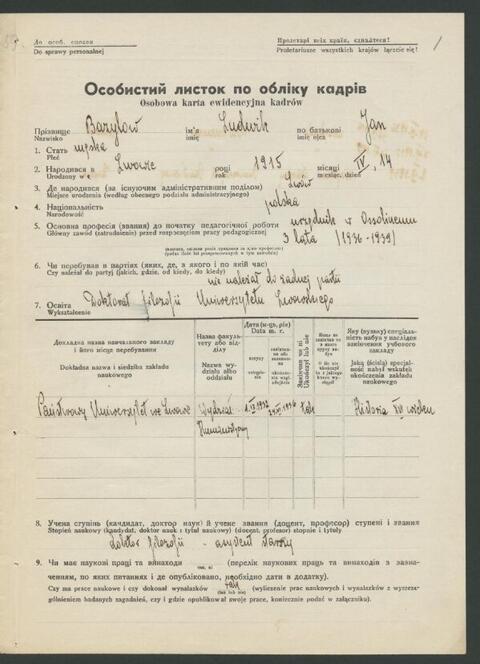 До особ. справи
Do sprawy personalnej
Пролетарі всіх країн, єднайтеся!
Proletariusze wszystkich krajów łączcie się!
1
Особистий листок по обліку кадрів
Osobowa karta ewidencyjna kadrów
Прізвище Nazwisko Barylow ім'я imię Ludwik по батькові imię ojca Jan
1. Стать Płeć męska
2. Народився в Urodzony w Lwowie році roku 1915 місяці miesiąc, dzień IV, 14
3. Де народився (за існуючим адміністративним поділом) Lwów
Miejsce urodzenia (według obecnego podziału administracyjnego)
4. Національність Narodowość polska
5. Основна професія (звання) до початку педагогічної роботи urzędnik w Ossolineum
Główny zawód (zatrudnienie) przed rozpoczęciem pracy pedagogicznej 3 lata (1936-1939)
6. Чи перебував в партіях (яких, де, з якого і по який час)
Czy należał do partyj (jakich, gdzie, od kiedy, do kiedy) nie należał do żadnej partii
7. Освіта Wykształcenie Doktorat filozofii Uniwersytetu Lwowskiego
Докладна назва навчального закладу і його місце перебування
Dokładna nazwa i siedziba zakładu naukowego
Назва факультету або відділу
Nazwa wydziału albo oddziału
Дата (м-ць, рік)
Data m. r.
вступу
Закінчив чи ні
Ukończył lub nie
Яку (вузьку) спеціальність набув у наслідок закінчення учбового закладу
Jaką (ścisłą) specjalność nabył wskutek ukończenia zakładu naukowego
Państwowy Uniwersytet we Lwowie Wydział Humanistyczny tak Historia XVI wieku
8. Учена ступінь (кандидат, доктор наук) й учене звання (доцент, професор) ступені і звання
Stopień naukowy (kandydat, doktor nauk i tytuł naukowy) (docent, profesor) stopnie i tytuły
doktor filozofii - asystent starszy
9. Чи має наукові праці та винаходи (перелік наукових праць та винаходів з зазначенням, по яких питаннях і де опубліковано, необхідно дати в додатку).
tak
Czy ma prace naukowe i czy dokonał wynalazków (tak lub nie) (wyliczenie prac naukowych i wynalazków z wyszczególnieniem badanych zagadnień, czy i gdzie opublikował swoje prace, koniecznie podać w załączniku).